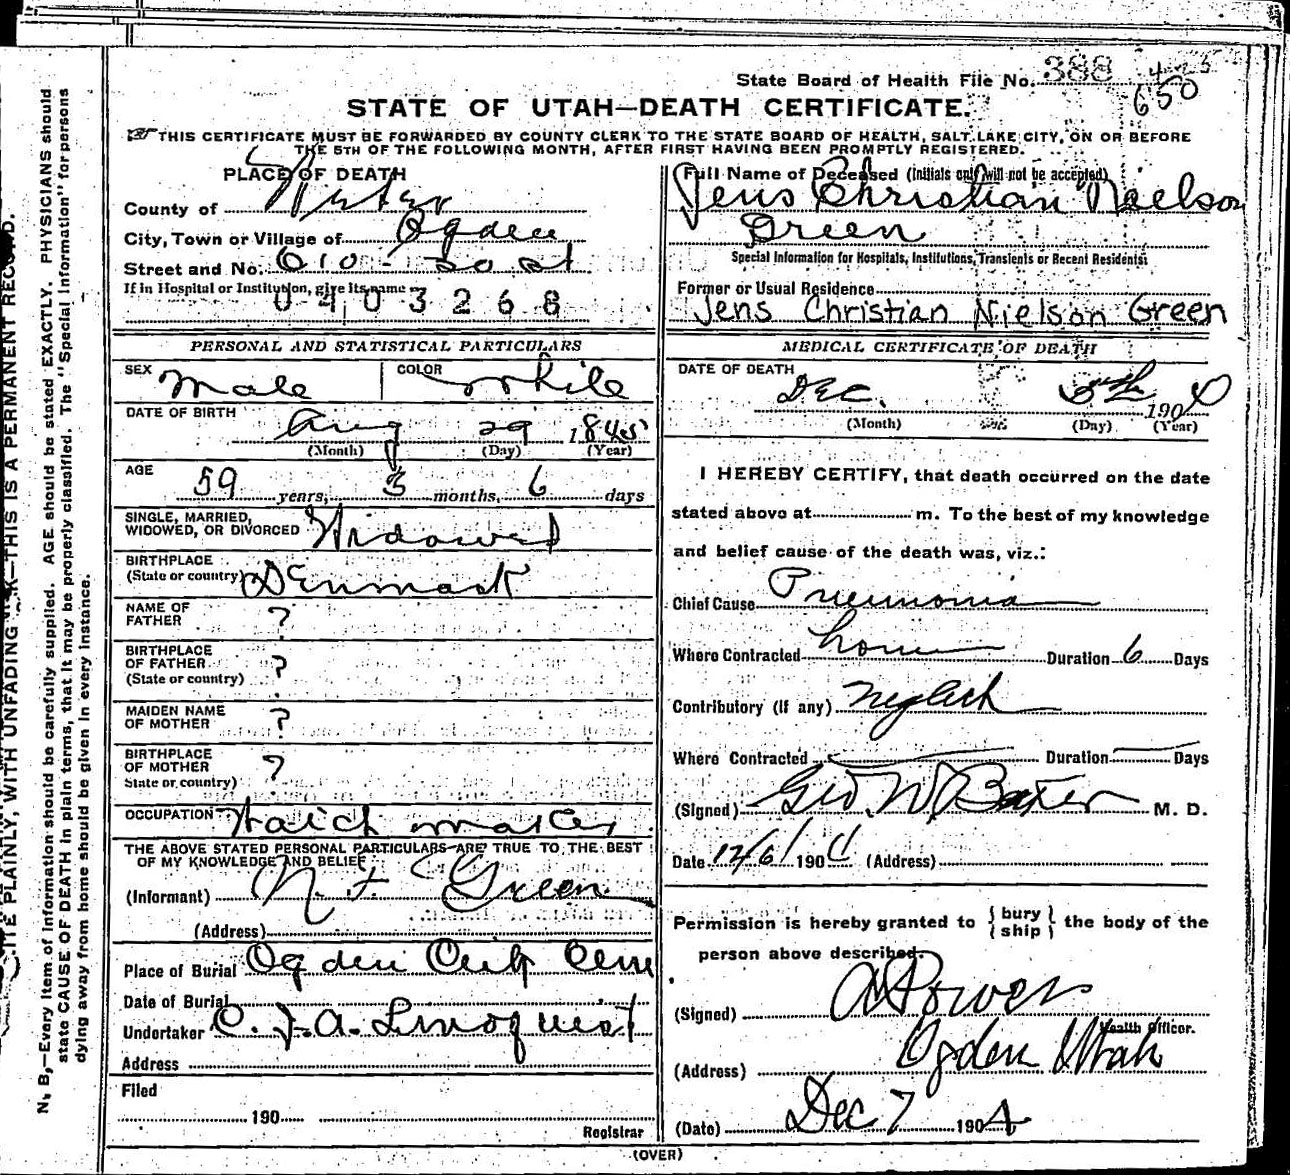 State Board of Health File No. 388
650
STATE OF UTAH—DEATH CERTIFICATE.
THIS CERTIFICATE MUST BE FORWARDED BY COUNTY CLERK TO THE STATE BOARD OF HEALTH, SALT LAKE CITY, ON OR BEFORE
THE 5TH OF THE FOLLOWING MONTH, AFTER FIRST HAVING BEEN PROMPTLY REGISTERED.
PLACE OF DEATH
County of Weber
City, Town or Village of Ogden
Street and No. 610 - 20 st
If in Hospital or Institution, give its name
0403268
Full Name of Deceased (Initials only will not be accepted)
Jens Christian Nielson
Green
Special Information for Hospitals, Institutions, Transients or Recent Residents:
Former or Usual Residence
Jens Christian Nielson Green
PERSONAL AND STATISTICAL PARTICULARS
SEX Male COLOR White
DATE OF BIRTH Aug 29 1845
(Month) (Day) (Year)
AGE 59 years, 3 months, 6 days
SINGLE, MARRIED,
WIDOWED, OR DIVORCED Widowed
BIRTHPLACE
(State or country) Denmark
NAME OF
FATHER ?
BIRTHPLACE
OF FATHER
(State or country) ?
MAIDEN NAME
OF MOTHER ?
BIRTHPLACE
OF MOTHER
State or country) ?
OCCUPATION Watch maker
THE ABOVE STATED PERSONAL PARTICULARS ARE TRUE TO THE BEST
OF MY KNOWLEDGE AND BELIEF
(Informant) N. F. Green
(Address)
Place of Burial Ogden City Cem
Date of Burial
Undertaker C. J. A. Lindquist
Address
Filed
190
Registrar
MEDICAL CERTIFICATE OF DEATH
DATE OF DEATH
Dec. 5th 1904
(Month) (Day) (Year)
I HEREBY CERTIFY, that death occurred on the date
stated above at m. To the best of my knowledge
and belief cause of the death was, viz.:
Chief Cause Pneumonia
Where Contracted home Duration 6 Days
Contributory (if any) neglect
Where Contracted Duration Days
(Signed) Geo. W. Baxter M. D.
Date 12/6/1904 (Address)
Permission is hereby granted to { bury ship } the body of the
person above described.
(Signed) Powers
Health Officer.
(Address) Ogden Utah
(Date) Dec 7 1904
(OVER)
N. B.—Every item of information should be carefully supplied. AGE should be stated EXACTLY. PHYSICIANS should
state CAUSE OF DEATH in plain terms, that it may be properly classified. The "Special Information" for persons
dying away from home should be given in every instance.
PLAINLY, WITH UNFADING INK—THIS IS A PERMANENT RECORD.